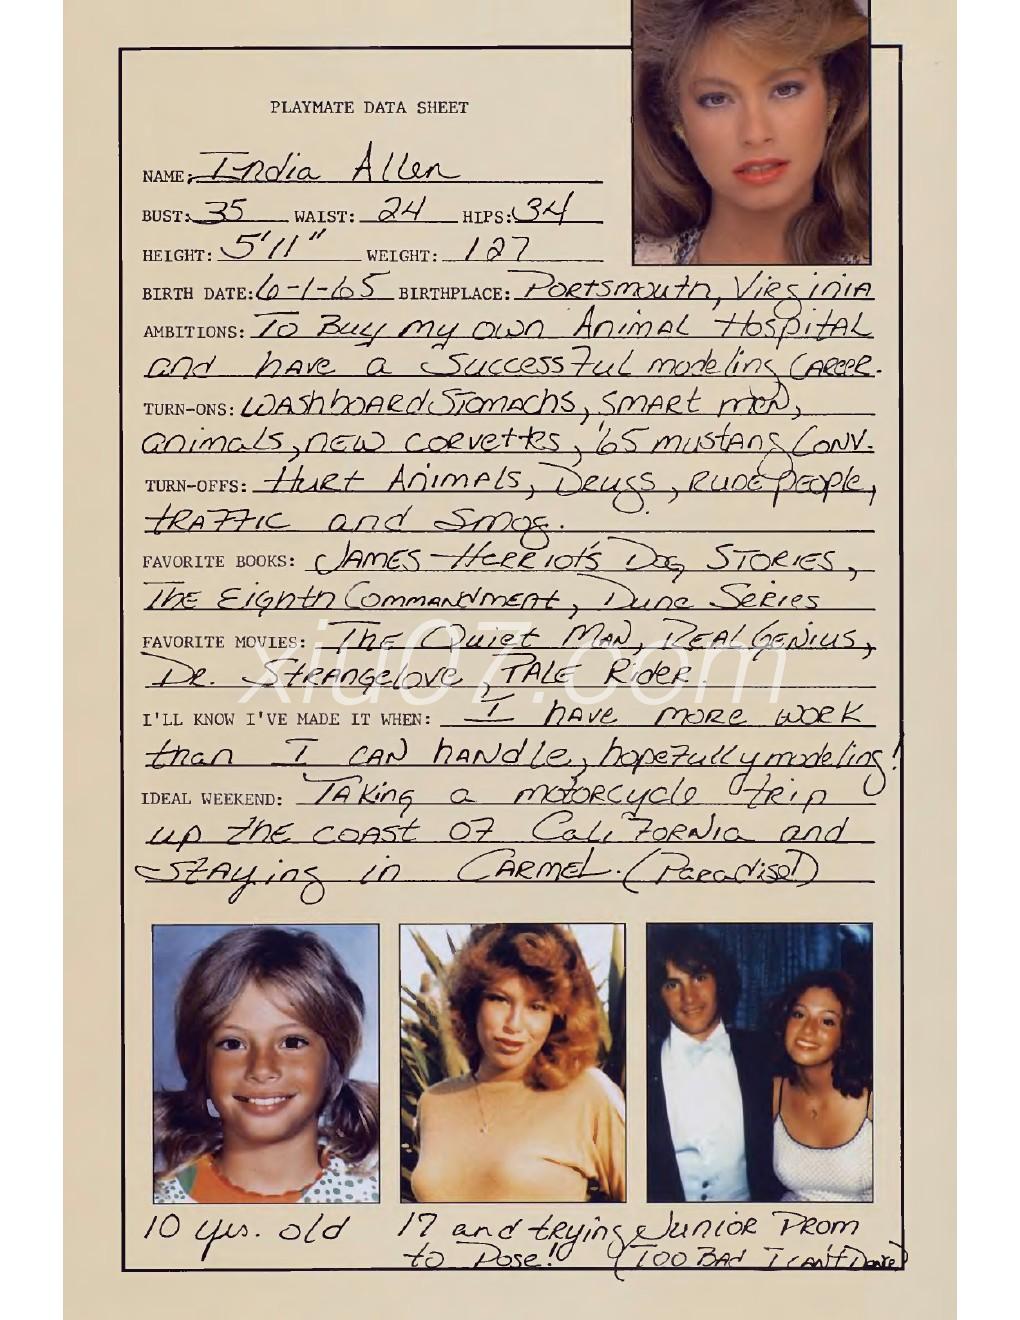 PLAYMATE DATA SHEET
NAME: India Allen
BUST: 35 WAIST: 24 HIPS: 34
HEIGHT: 5'11" WEIGHT: 127
BIRTH DATE: 6-1-65 BIRTHPLACE: Portsmouth, Virginia
AMBITIONS: To Buy my own Animal Hospital
and have a Successful modeling Career.
TURN-ONS: Washboard Stomachs, smart men,
animals, new corvettes, '65 mustang Conv.
TURN-OFFS: Hurt Animals, Drugs, Rude people,
traffic and Smog.
FAVORITE BOOKS: James Herriot's Dog Stories,
The Eighth Commandment, Dune Series
FAVORITE MOVIES: The Quiet Man, Real Genius,
Dr. Strangelove, Pale Rider.
xiu07.com
I'LL KNOW I'VE MADE IT WHEN: I have more work
than I can handle, hopefully modeling!
IDEAL WEEKEND: Taking a motorcycle trip
up the coast of California and
staying in Carmel. (Paradise!)
10 yrs. old
17 and trying
to Pose!
Junior Prom
(Too Bad I can't Dance)